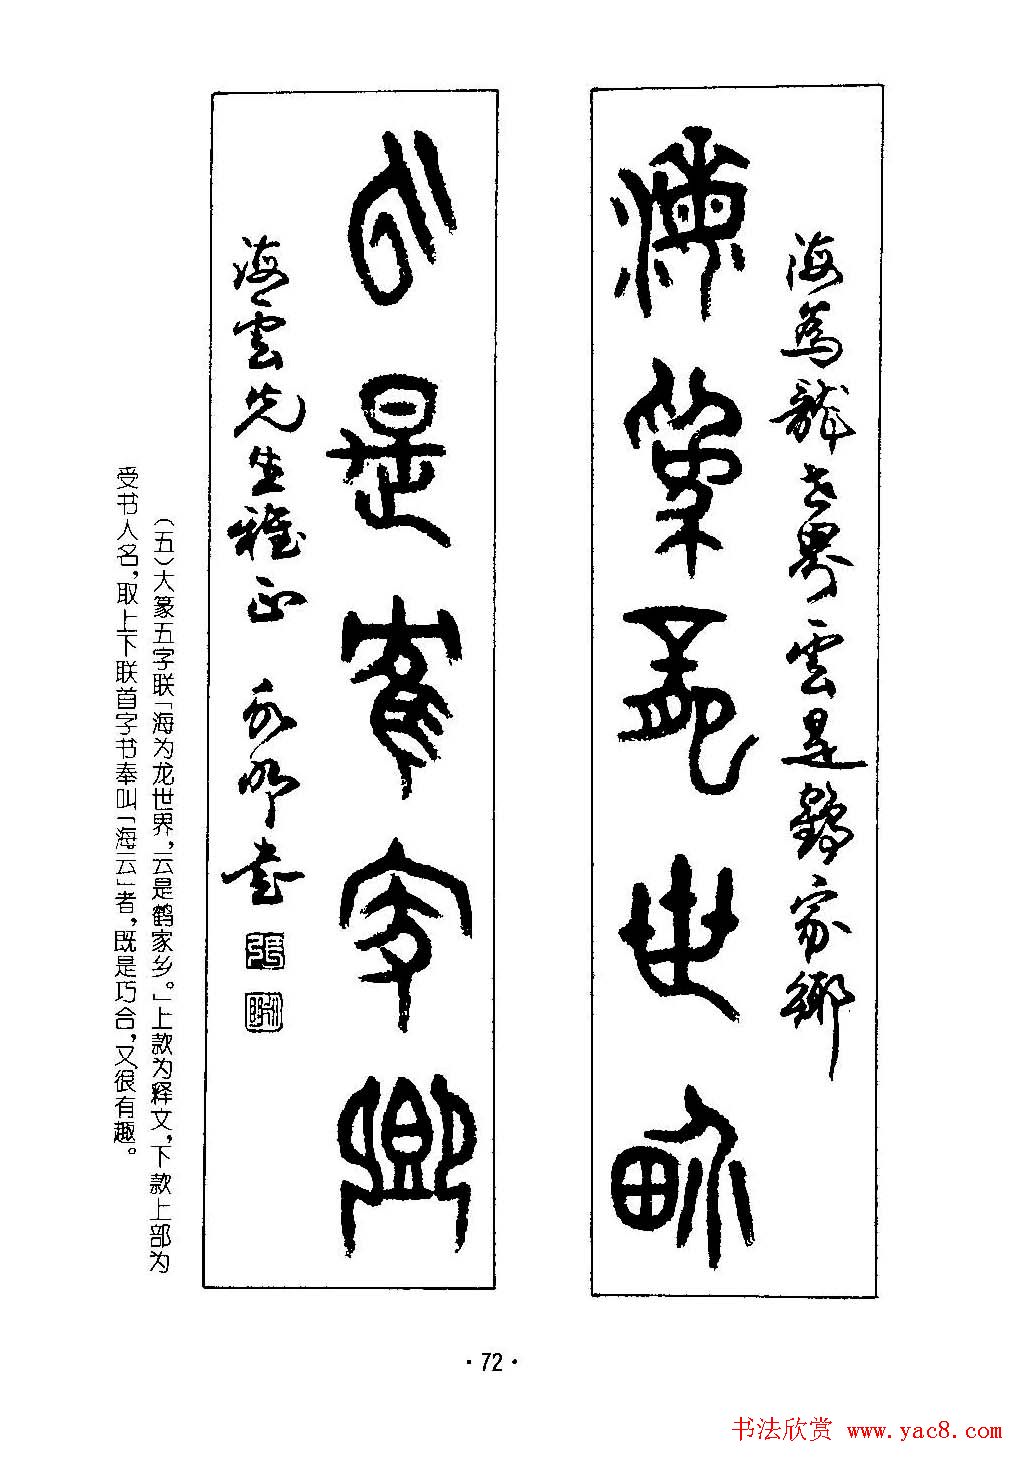 海為龍世界雲是鶴家鄉
海為龍世界
云是鶴家鄉
海雲先生雅正 永明書
(五)大篆五字联「海为龙世界,云是鹤家乡。」上款为释文,下款上部为
受书人名,取上下联首字书奉叫「海云」者,既是巧合,又很有趣。
·72·
书法欣赏 www.yac8.com